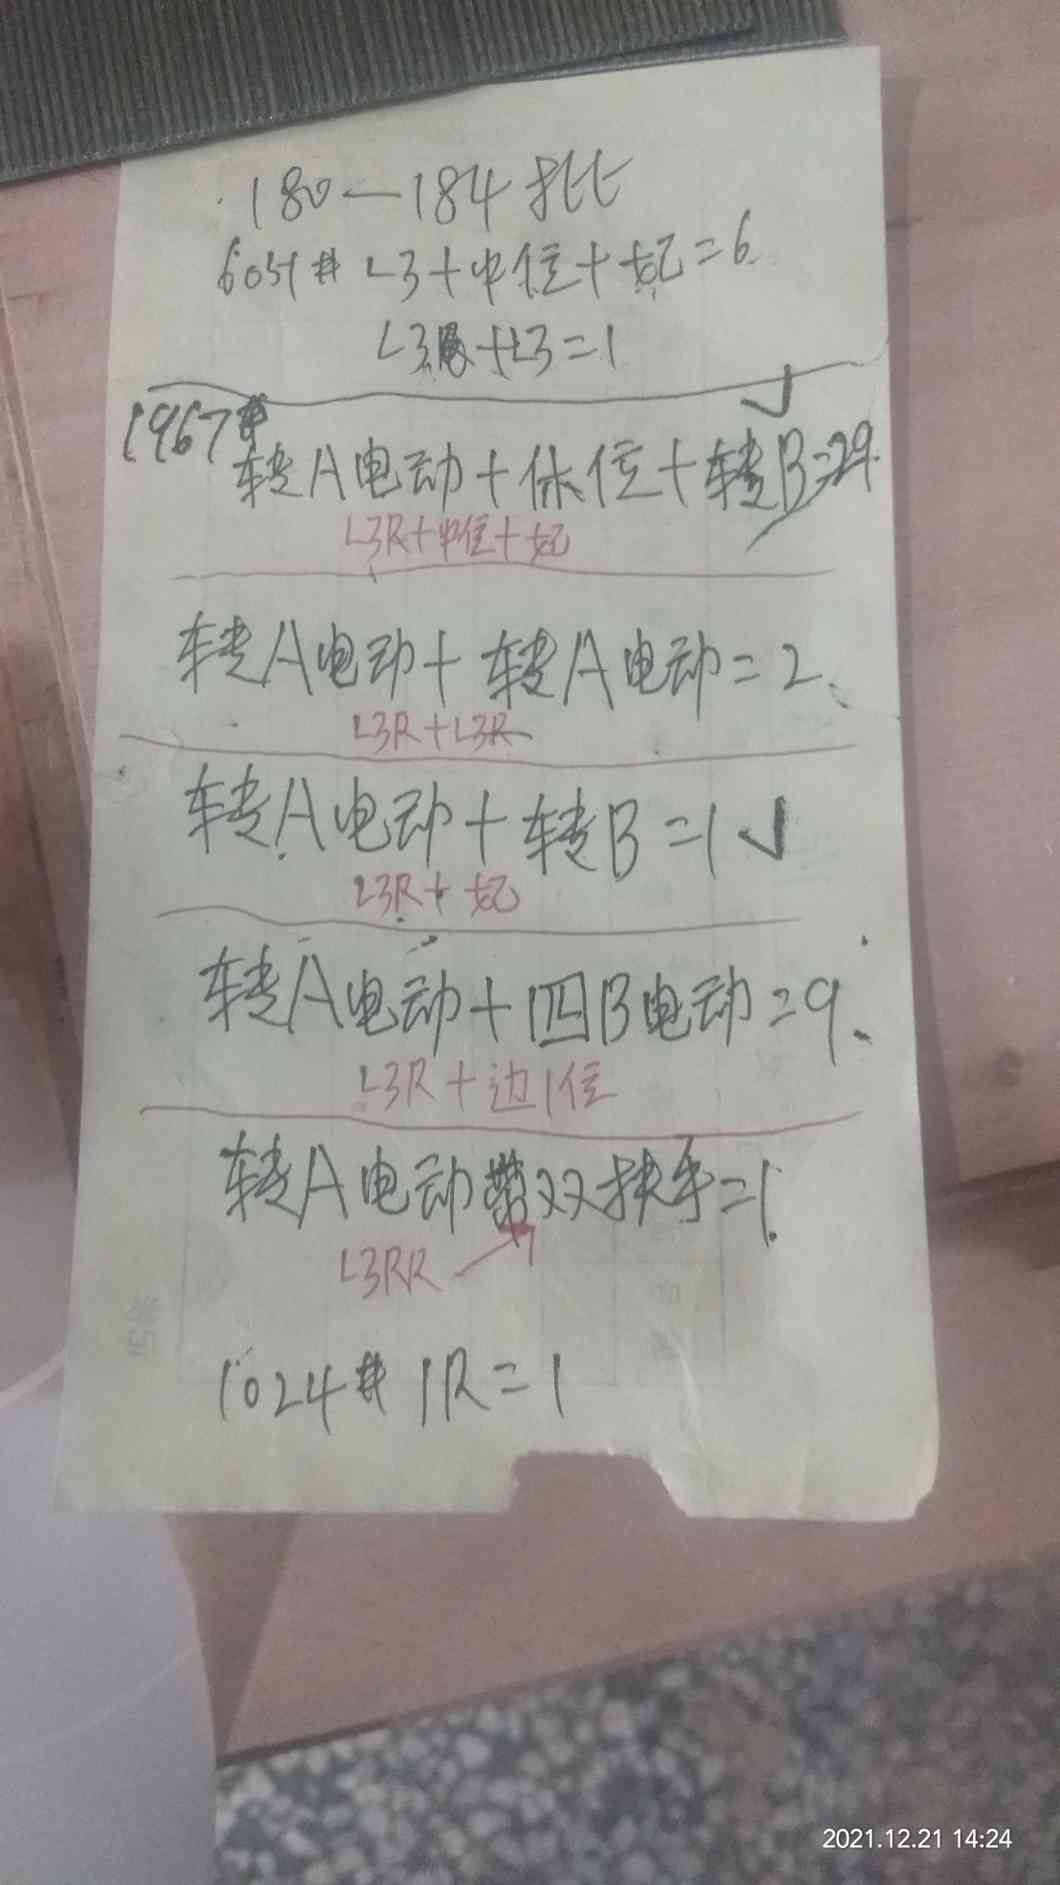 180—184批
6051# L3+中位+妃=6
L3R+L3=1
1967#
转A电动+休位+转B=29
L3R+中位+妃
转A电动+转A电动=2
L3R+L3R
转A电动+转B=1√
L3R+妃
转A电动+四B电动=9
L3R+边1位
转A电动带双扶手=1
L3RR
1024# 1R=1
2021.12.21 14:24